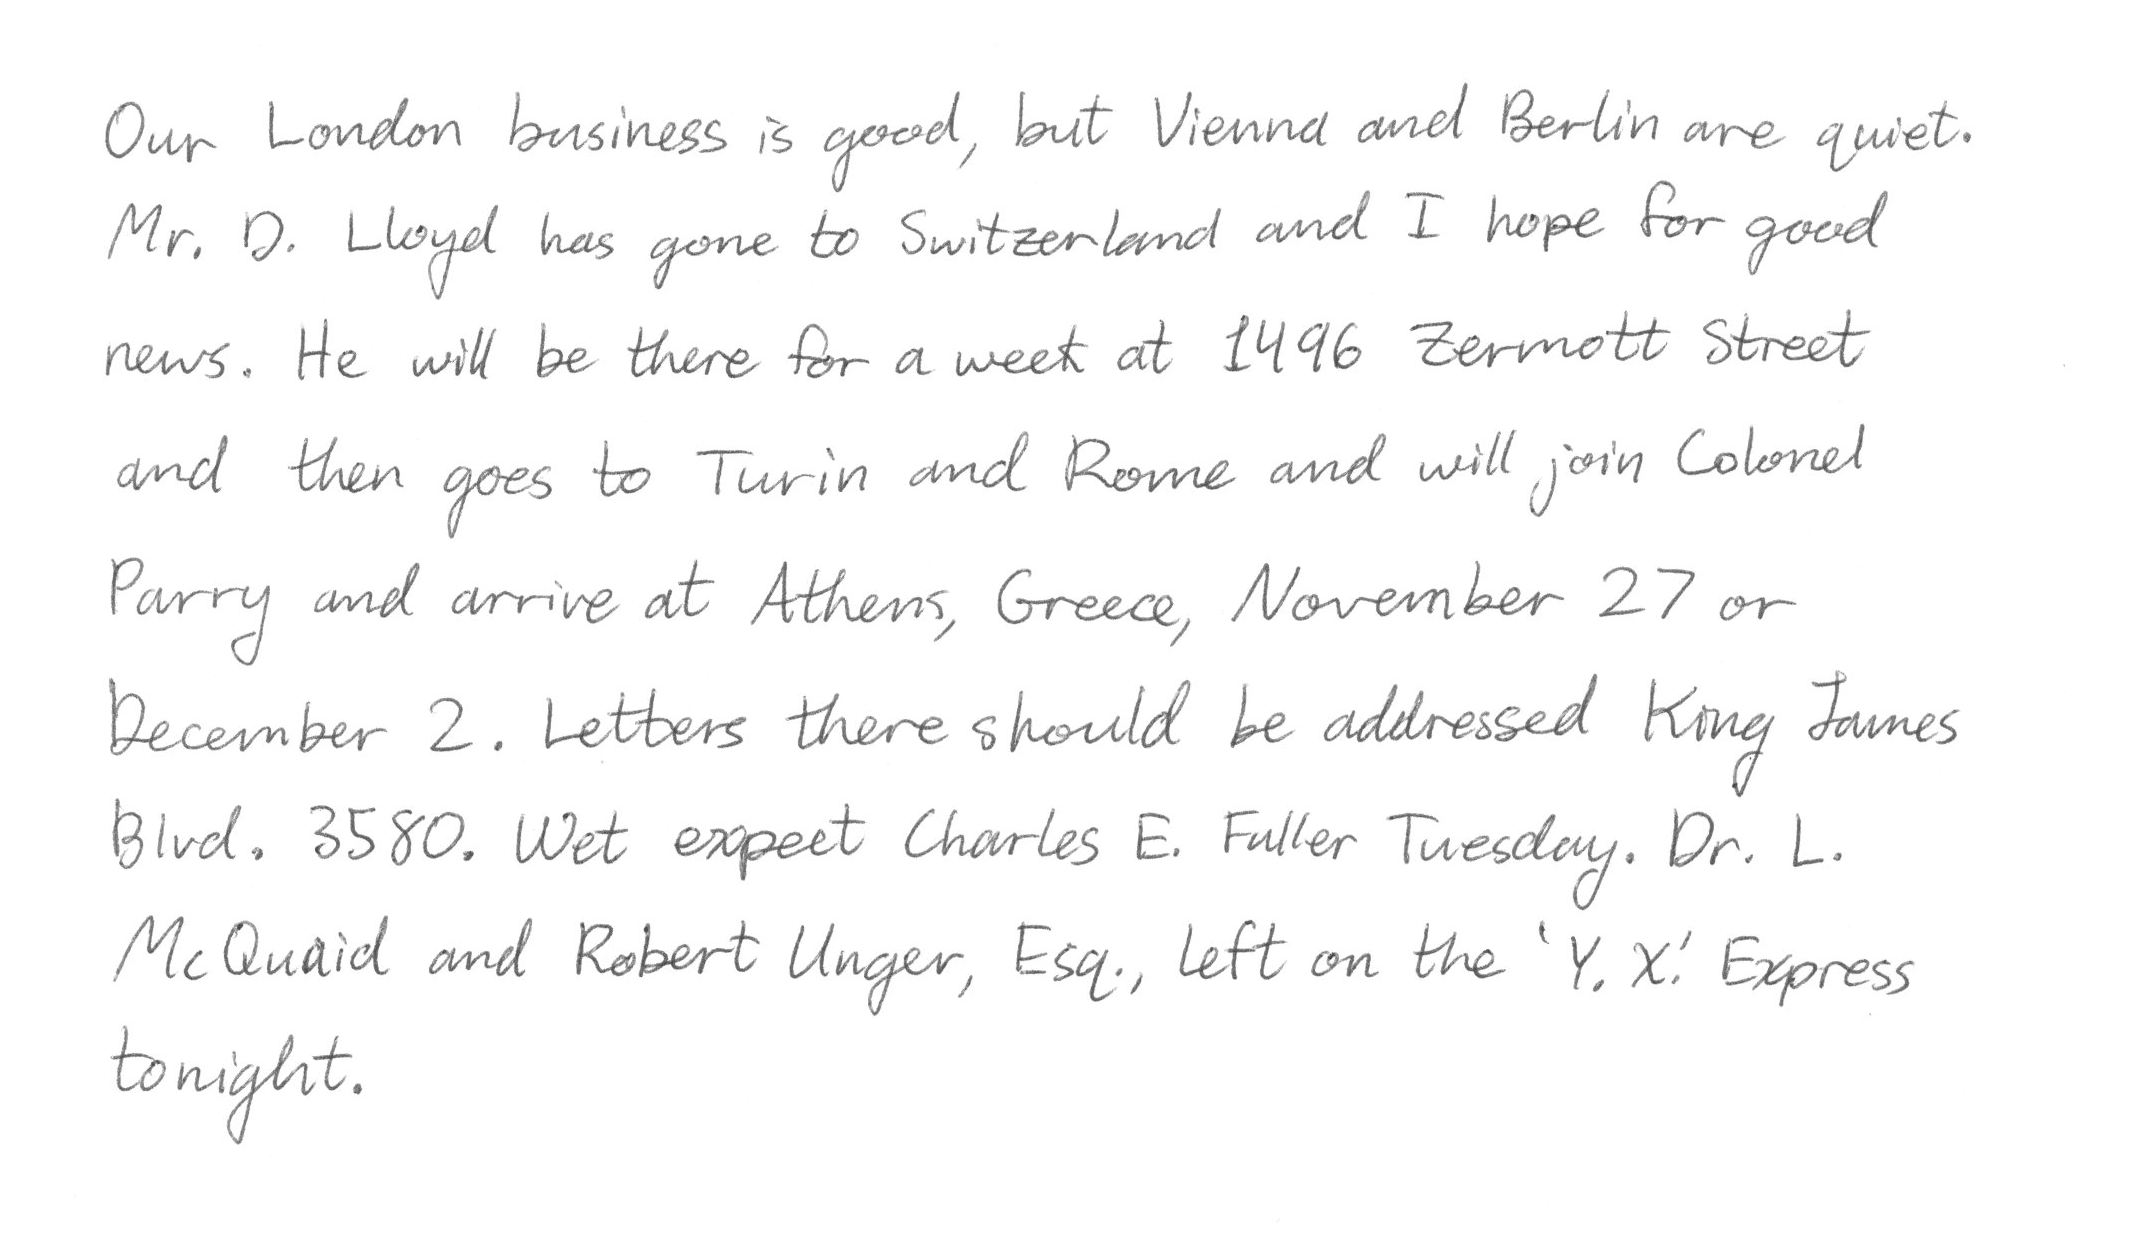 Our London business is good, but Vienna and Berlin are quiet.
Mr. D. Lloyd has gone to Switzerland and I hope for good
news. He will be there for a week at 1496 Zermott Street
and then goes to Turin and Rome and will join Colonel
Parry and arrive at Athens, Greece, November 27 or
December 2. Letters there should be addressed King James
Blvd. 3580. Wet expect Charles E. Fuller Tuesday. Dr. L.
McQuaid and Robert Unger, Esq., left on the 'Y. X.' Express
tonight.